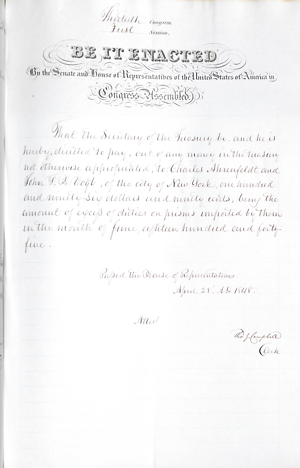 Thirtieth Congress
First Session
BE IT ENACTED
By the Senate and House of Representatives of the United States of America in
Congress Assembled
That the Secretary of the Treasury be, and he is
hereby, directed to pay, out of any money in the treasury
not otherwise appropriated, to Charles Ahrenfeldt and
John F. H. Vogt, of the city of New York, one hundred
and ninety six dollars and ninety cents, being the
amount of excess of duties on prisms imported by them
in the month of June eighteen hundred and forty-
five.
Passed the House of Representatives
April 21, AD 1848.
Attest
Th J Campbell
Clerk